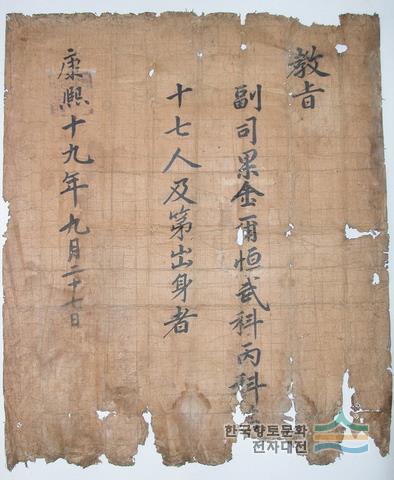 教旨
副司果金爾恒武科丙科
十七人及第出身者
康熙十九年九月二十七日
한국향토문화
전자대전